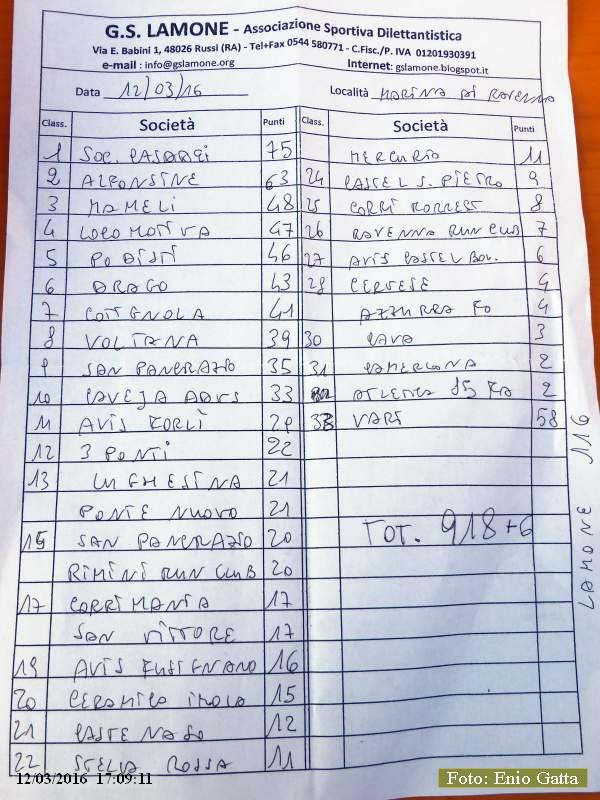 G.S. LAMONE - Associazione Sportiva Dilettantistica
Via E. Babini 1, 48026 Russi (RA) - Tel+Fax 0544 580771 - C.Fisc./P. IVA 01201930391
e-mail : info@gslamone.org Internet: gslamone.blogspot.it
Data 12/03/16 Località MARINA DI RAVENNA
Class. Società Punti Class. Società Punti
1 SOC. CASADEI 75
2 ALFONSINE 63
3 MAMELI 48
4 LOCOMOTIVA 47
5 PODISTI 46
6 DRAGO 43
7 COTIGNOLA 41
8 VOLTANA 39
9 SAN PANCRAZIO 35
10 CAVEJA 33
11 AVIS FORLÌ 29
12 3 PONTI 22
13 LUGHESINA 21
PONTE NUOVO 21
15 SAN PANCRAZIO 20
RIMINI RUN CLUB 20
17 CORRIMANIA 17
SAN VITTORE 17
19 AVIS FUSIGNANO 16
20 CERAMICA IMOLA 15
21 CASTENASO 12
22 STELLA ROSSA 11
MERCURIO 11
24 CASTEL S. PIETRO 9
25 CORRI FORREST 8
26 RAVENNA RUN CLUB 7
27 AVIS CASTEL BOL. 6
28 CERVESE 4
AZZURRA FO 4
30 CAVA 3
31 CAMERLONA 2
ATLETICA 85 FA 2
33 VARI 58
TOT. 918+6
LAMONE 116
12/03/2016 17:09:11
Foto: Enio Gatta